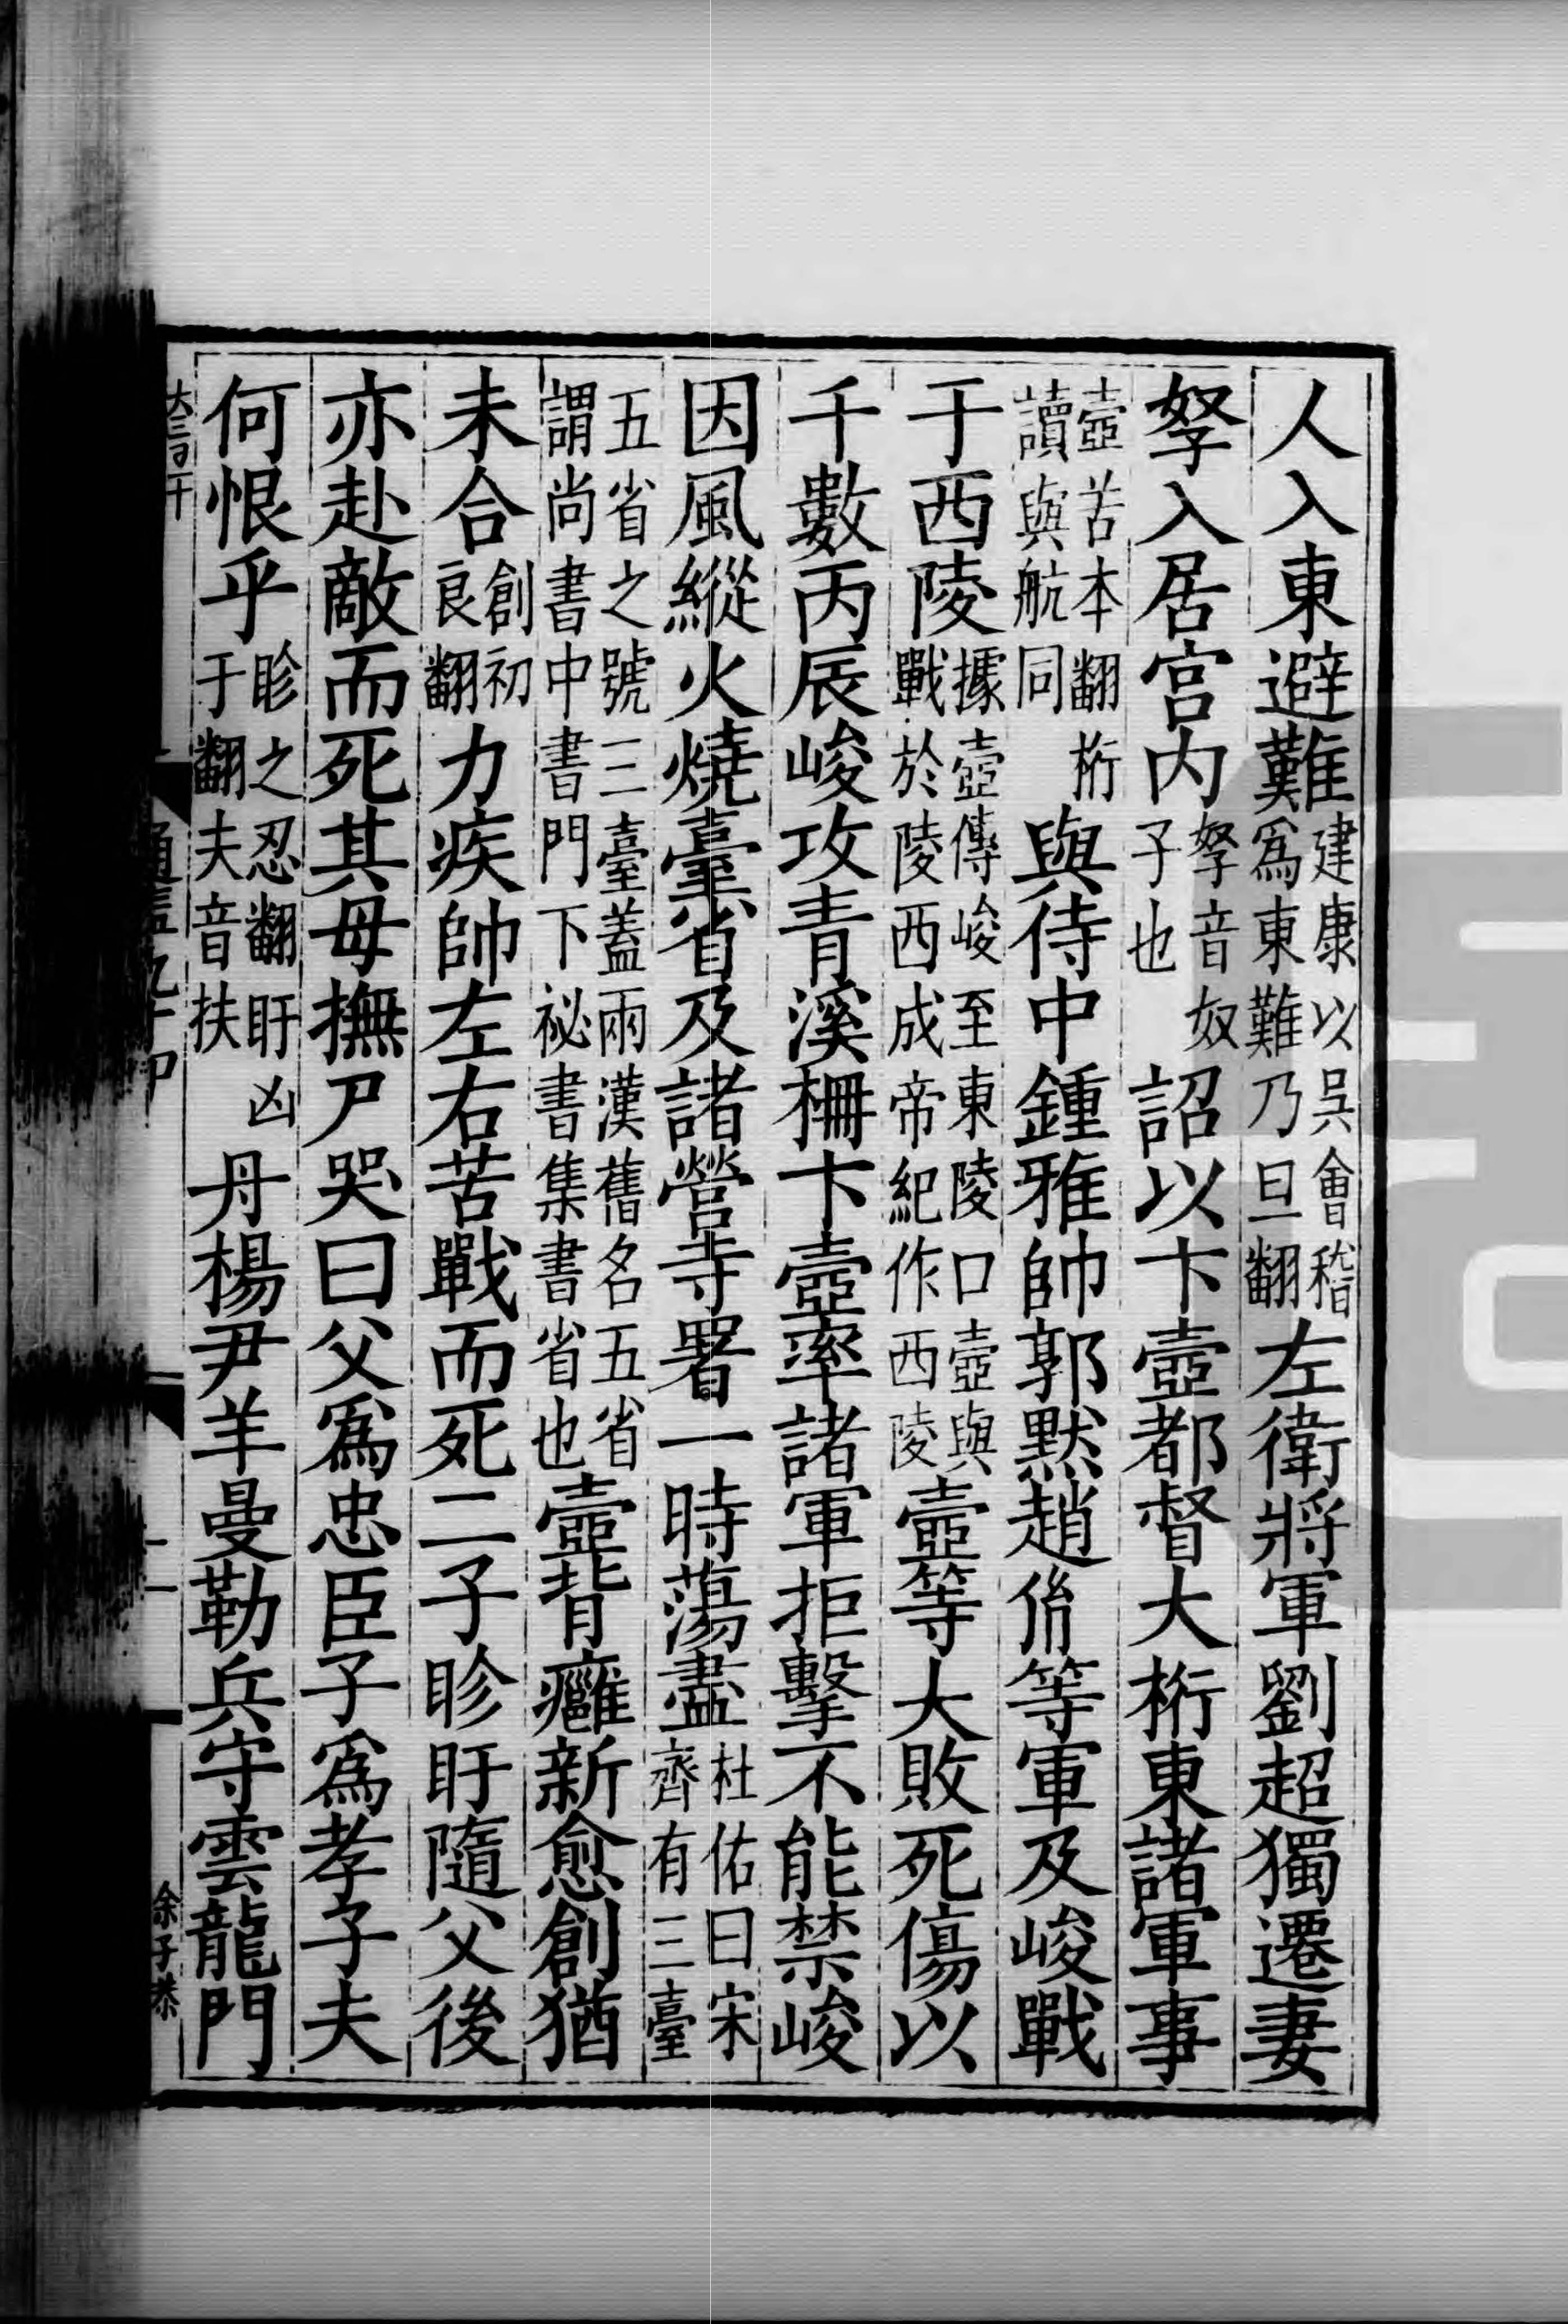 人入東避難建康以吳會稽爲東難乃旦翻左衛將軍劉超獨遷妻
孥入居宮内孥音奴子也詔以卞壼都督大桁東諸軍事
壼苦本翻桁讀與航同與侍中鍾雅帥郭默趙㣧等軍及峻戰
于西陵據壼傳峻至東陵口壼與戰於陵西成帝紀作西陵壼等大敗死傷以
千數丙辰峻攻青溪柵卞壼率諸軍拒擊不能禁峻
因風縱火燒臺省及諸營寺署一時蕩盡杜佑曰宋齊有三臺
五省之號三臺蓋兩漢舊名五省謂尚書中書門下祕書集書省也壼背癰新愈創猶
未合創初良翻力疾帥左右苦戰而死二子眕盱隨父後
亦赴敵而死其母撫尸哭曰父爲忠臣子爲孝子夫
何恨乎眕之忍翻盱凶于翻夫音扶丹楊尹羊曼勒兵守雲龍門